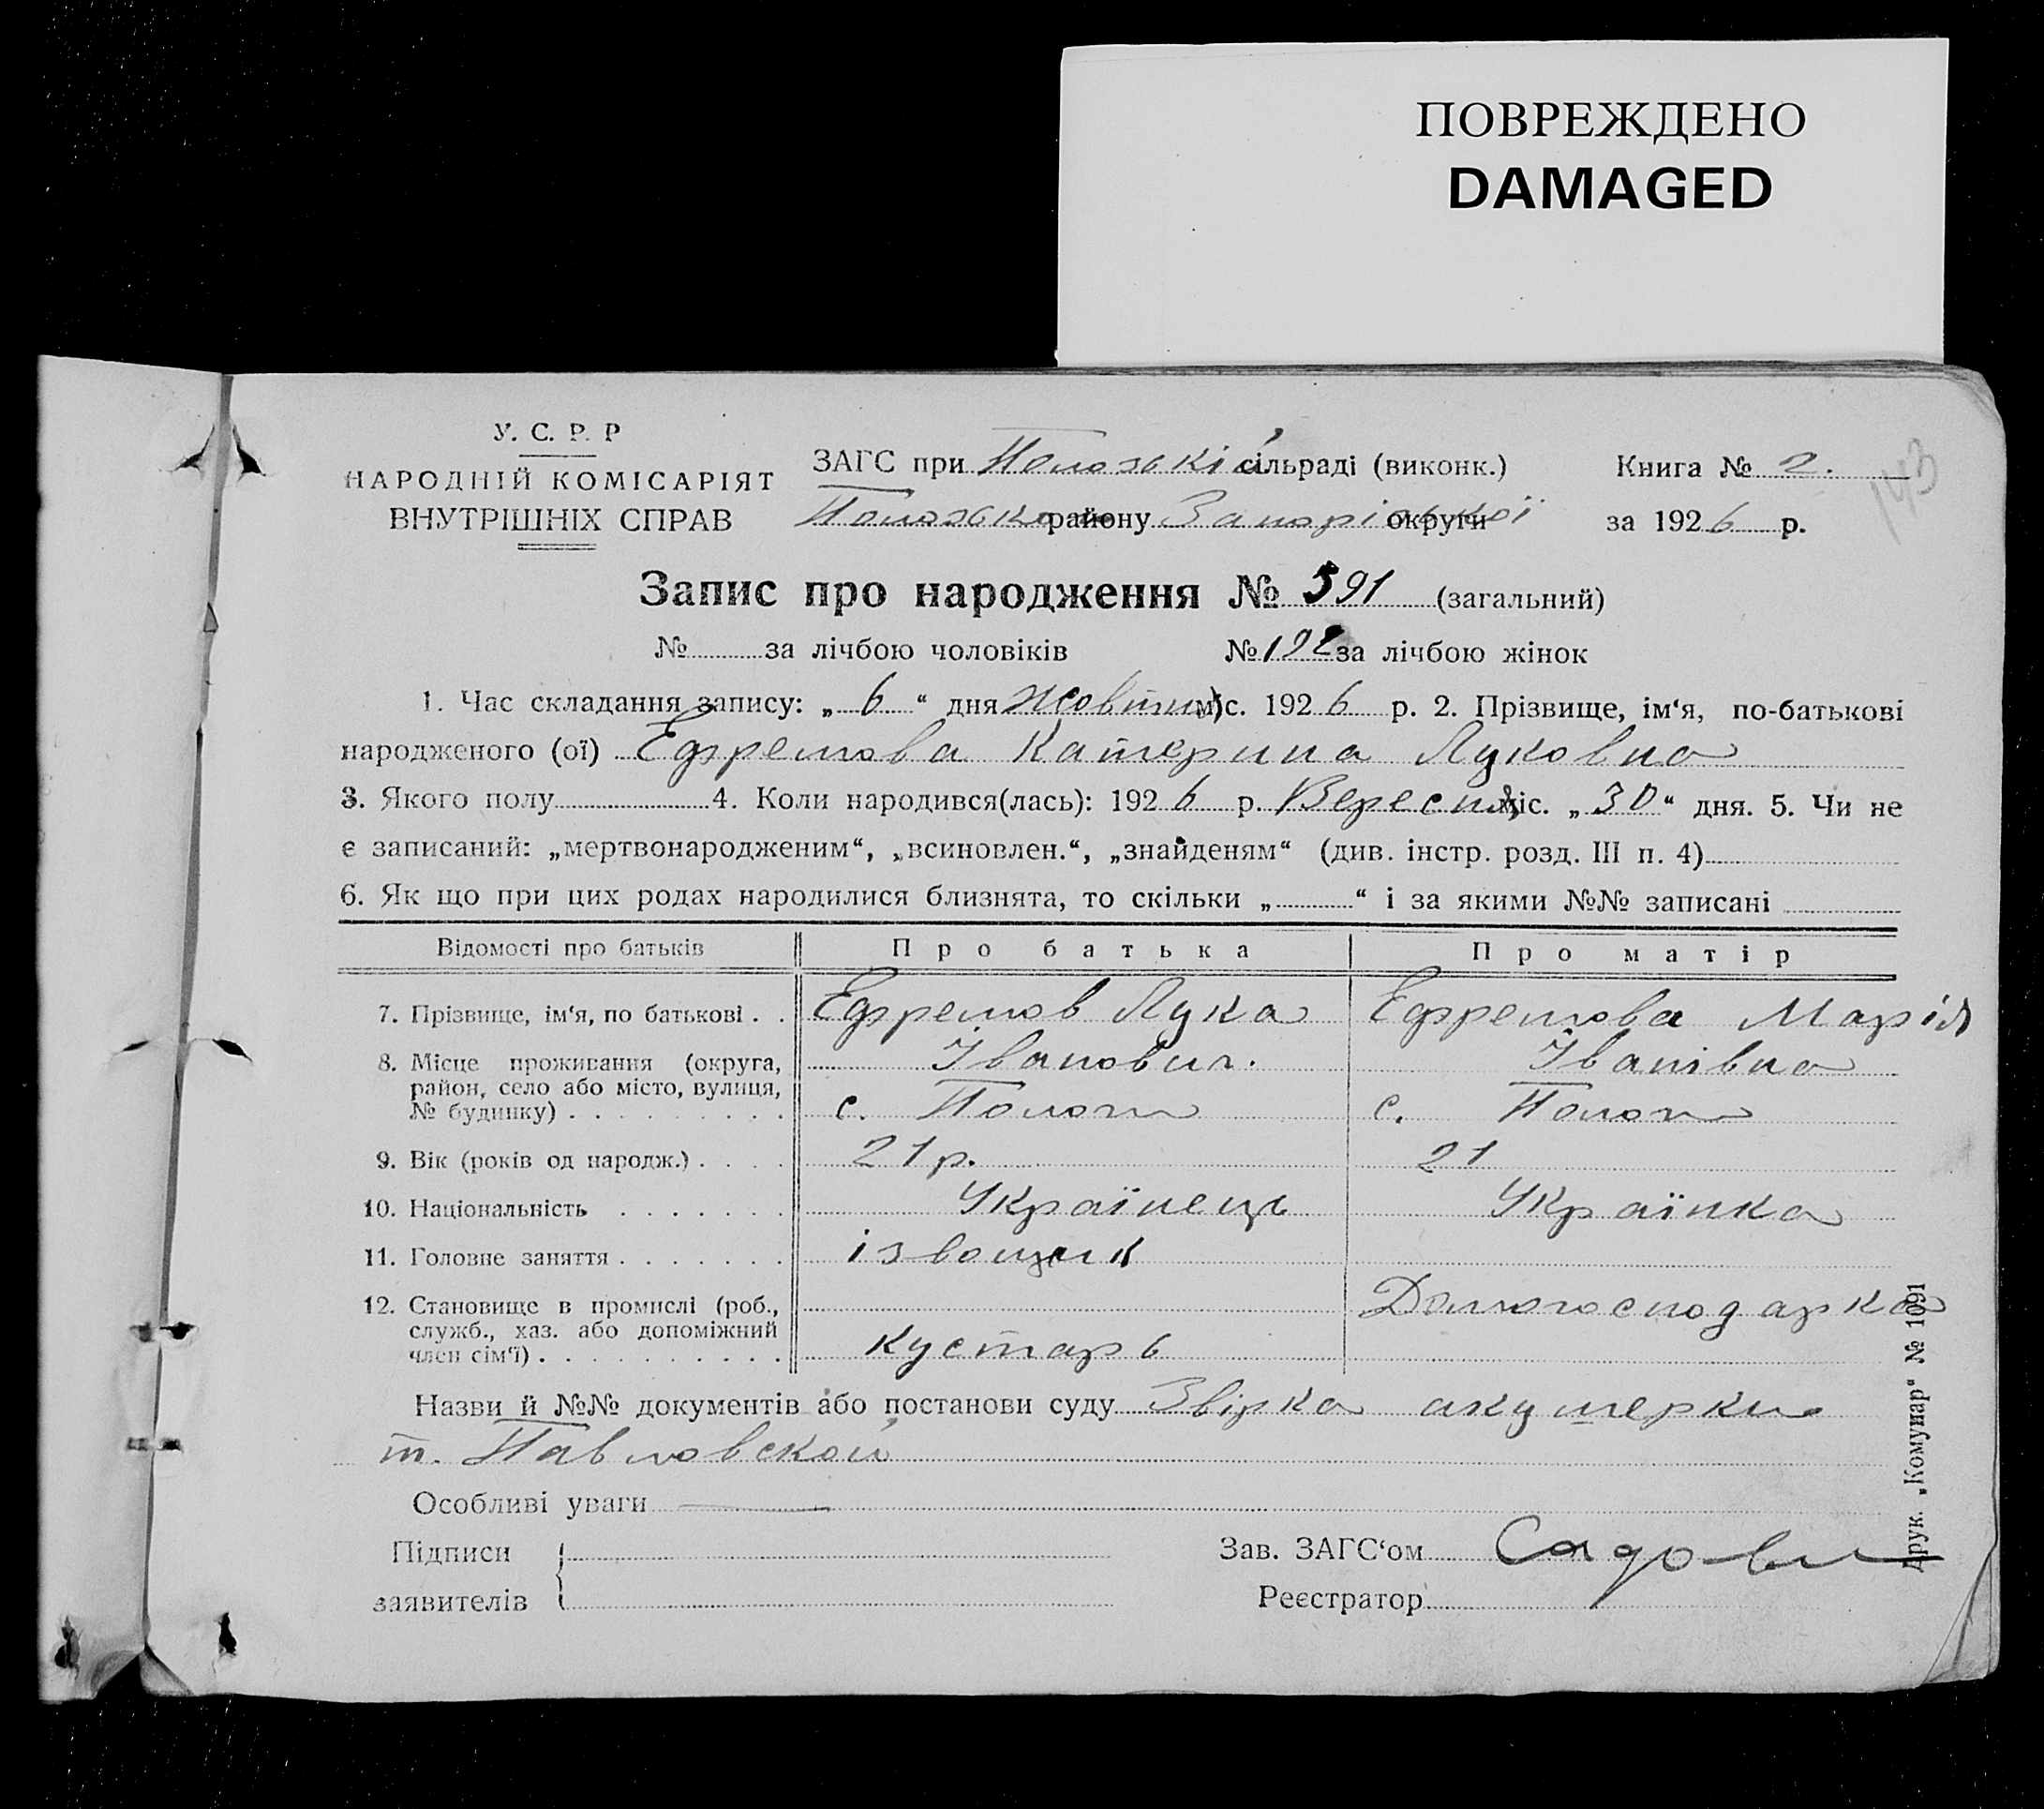 ПОВРЕЖДЕНО
DAMAGED
У. С. Р. Р
НАРОДНІЙ КОМІСАРІЯТ
ВНУТРІШНІХ СПРАВ
ЗАГС при Пологській сільраді (виконк.)
Пологського району Запорізької округи
Книга № 2.
за 1926 р.
143
Запис про народження № 391 (загальний)
№ за лічбою чоловіків № 192 за лічбою жінок
1. Час складання запису: „ 6 “ дня Жовтня міс. 1926 р. 2. Прізвище, ім‘я, по-батькові
народженого (ої) Ефремова Катерина Луковна
3. Якого полу 4. Коли народився(лась): 1926 р. Вересня міс. „ 30 “ дня. 5. Чи не
є записаний: „мертвонародженим“, „всиновлен.“, „знайденям“ (див. інстр. розд. III п. 4)
6. Як що при цих родах народилися близнята, то скільки „ “ і за якими №№ записані
Відомості про батьків Про батька Про матір
7. Прізвище, ім‘я, по батькові . . Ефремов Лука Ефремова Марія
Іванович. Іванівна
8. Місце проживання (округа,
район, село або місто, вулиця,
№ будинку) . . . . . . . . . с. Пологи с. Пологи
9. Вік (років од народж.) . . . . 21 р. 21
10. Національність . . . . . . . Українець Українка
11. Головне заняття . . . . . . . ізвощик
12. Становище в промислі (роб., Домогосподарка
служб., хаз. або допоміжний
член сім‘ї) . . . . . . . . . . кустарь
Назви й №№ документів або постанови суду Звірка акушерки
т. Павловской
Особливі уваги
Підписи
заявителів
Зав. ЗАГС‘ом
Реєстратор
Друк. „Комунар“ № 1091